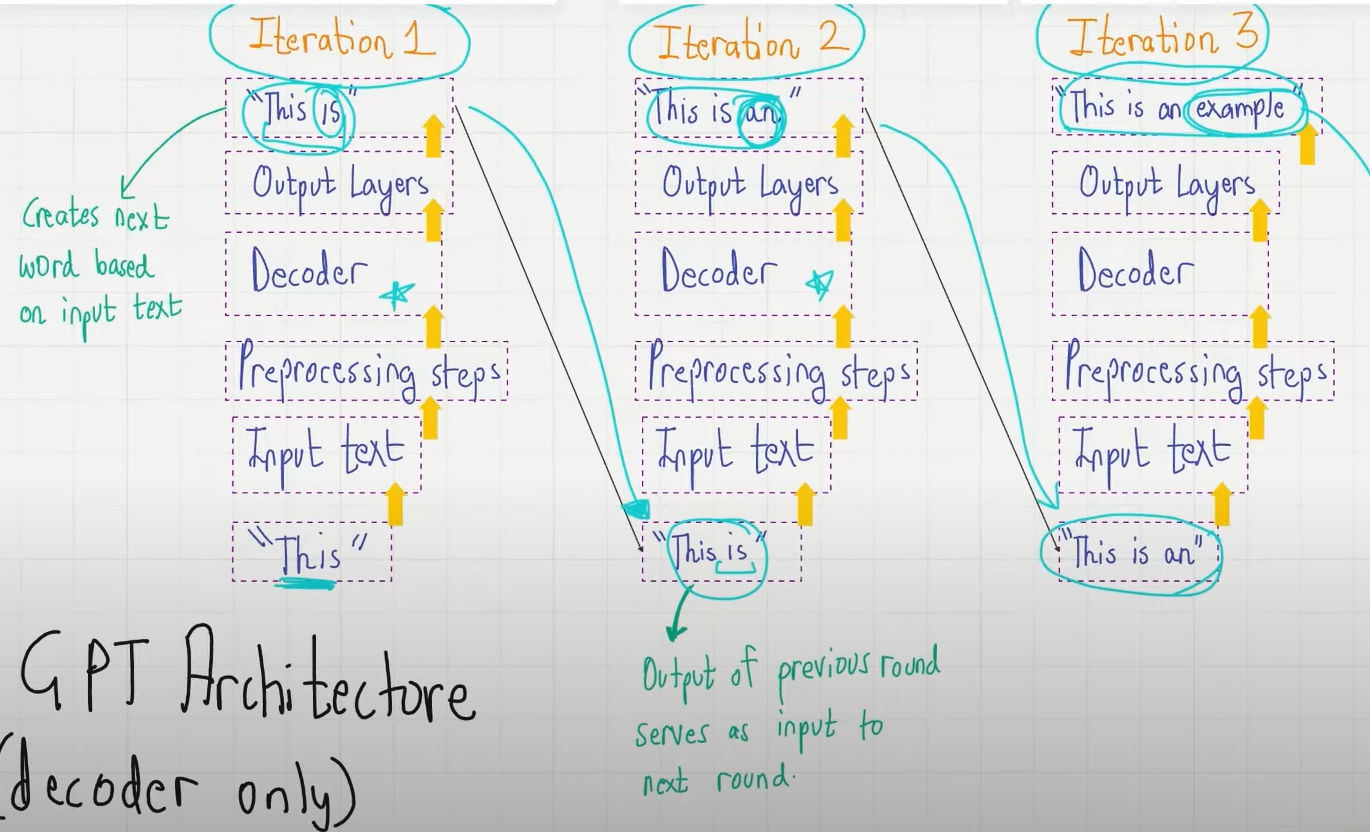 Iteration 1
"This is"
Output Layers
Decoder
Preprocessing steps
Input text
"This"
Creates next
word based
on input text
Iteration 2
"This is an"
Output Layers
Decoder
Preprocessing steps
Input text
"This is"
Output of previous round
serves as input to
next round.
Iteration 3
"This is an example"
Output Layers
Decoder
Preprocessing steps
Input text
"This is an"
GPT Architectore
(decoder only)